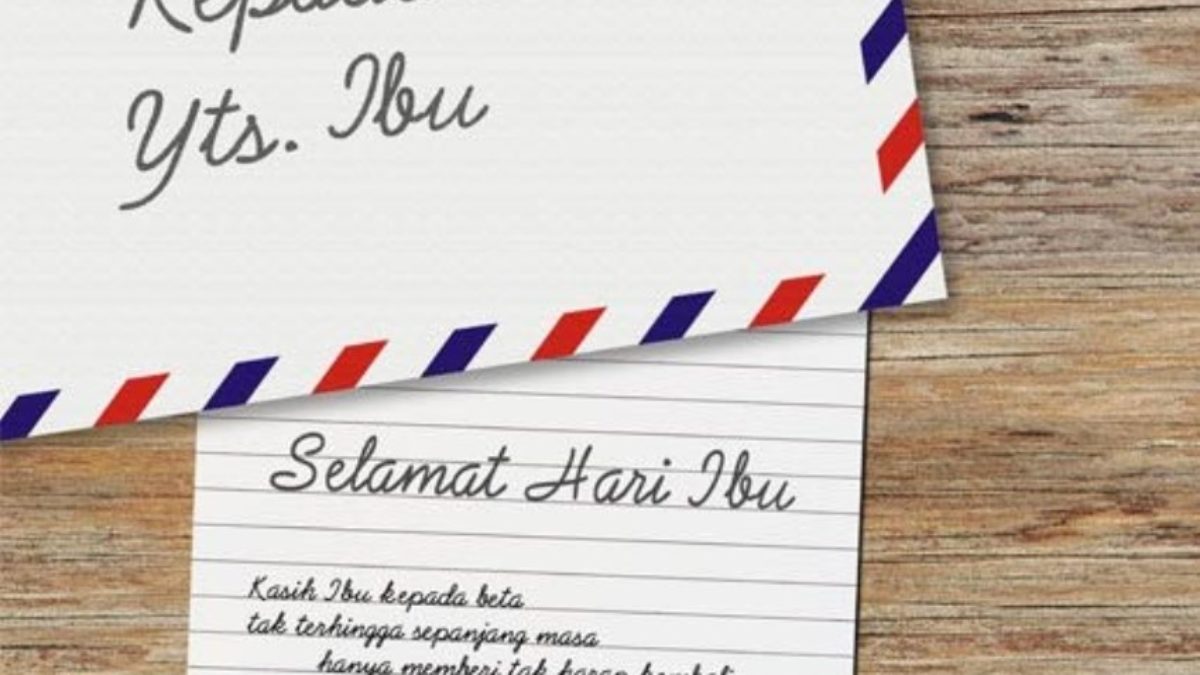 Kepada
Yts. Ibu
Selamat Hari Ibu
Kasih Ibu kepada beta
tak terhingga sepanjang masa
hanya memberi tak harap kembali